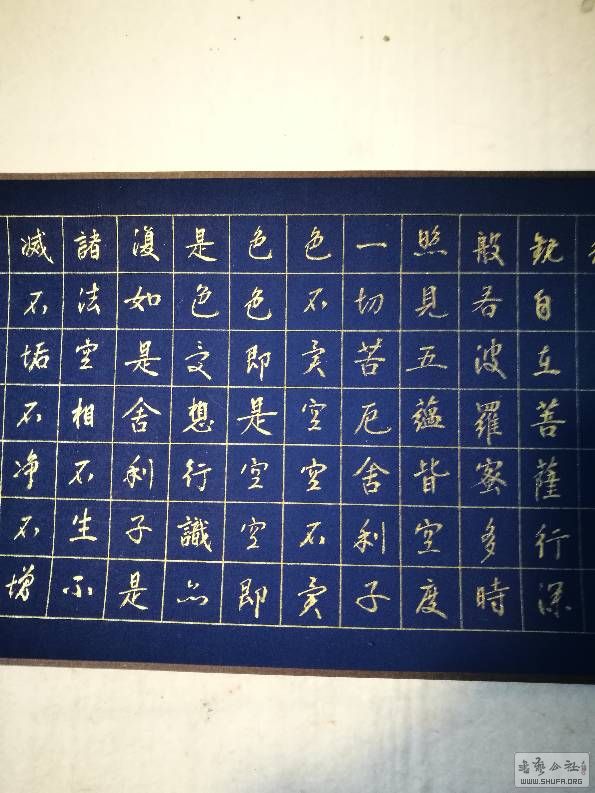 觀自在菩薩行深
般若波羅蜜多時
照見五蘊皆空度
一切苦厄舍利子
色不異空空不異
色色即是空空即
是色受想行識亦
復如是舍利子是
諸法空相不生不
滅不垢不净不增
书艺公社
WWW.SHUFA.ORG